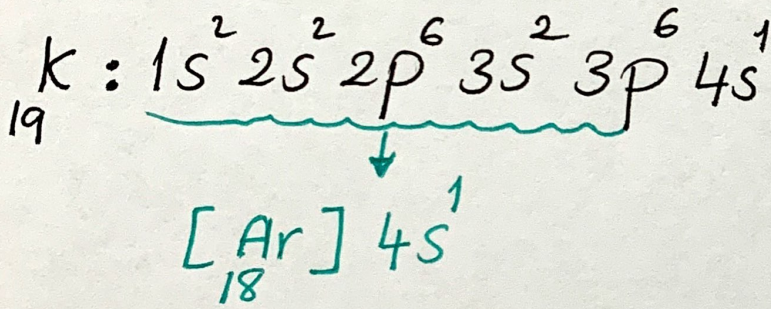 ₁₉K : 1s² 2s² 2p⁶ 3s² 3p⁶ 4s¹
[₁₈Ar] 4s¹